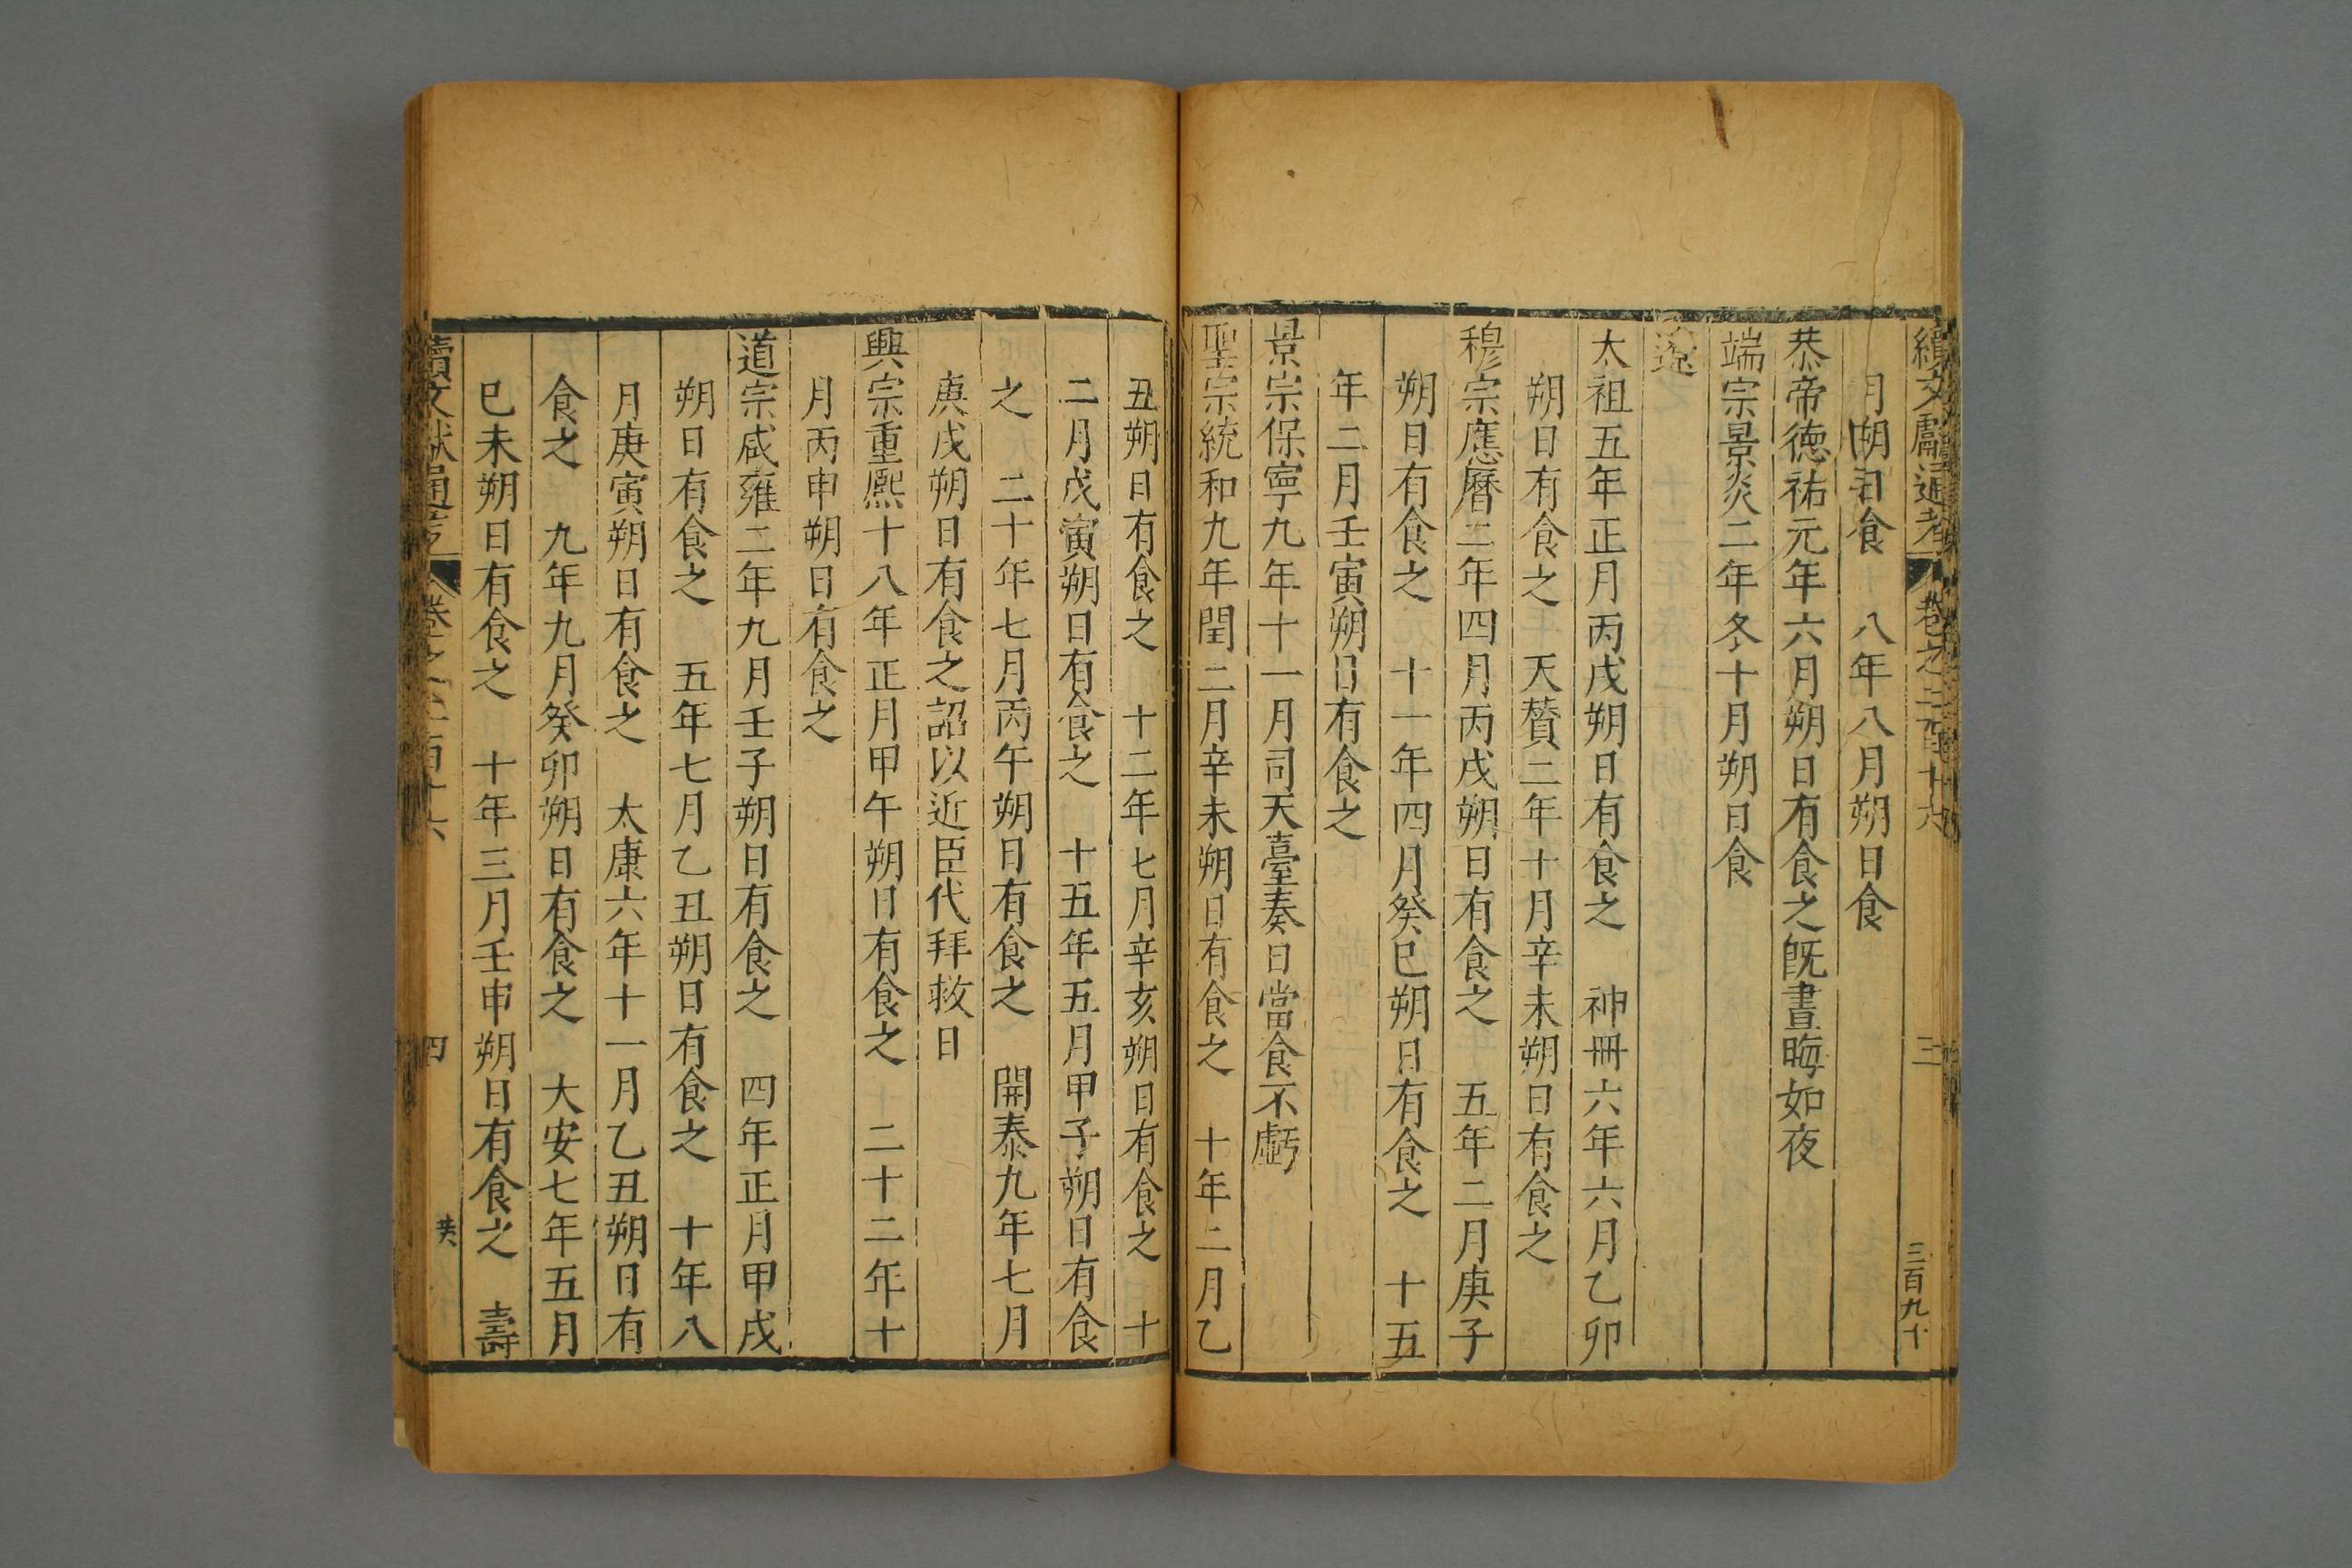 續文獻通考 卷之二百十六 三 三百九十
月朔日食 八年八月朔日食
恭帝德祐元年六月朔日有食之旣晝晦如夜
端宗景炎二年冬十月朔日食
遼
太祖五年正月丙戌朔日有食之 神冊六年六月乙卯
朔日有食之 天贊二年十月辛未朔日有食之
穆宗應曆二年四月丙戌朔日有食之 五年二月庚子
朔日有食之 十一年四月癸巳朔日有食之 十五
年二月壬寅朔日有食之
景宗保寧九年十一月司天臺奏日當食不虧
聖宗統和九年閏二月辛未朔日有食之 十年二月乙
丑朔日有食之 十二年七月辛亥朔日有食之 十
二月戊寅朔日有食之 十五年五月甲子朔日有食
之 二十年七月丙午朔日有食之 開泰九年七月
庚戌朔日有食之詔以近臣代拜救日
興宗重熙十八年正月甲午朔日有食之 二十二年十
月丙申朔日有食之
道宗咸雍二年九月壬子朔日有食之 四年正月甲戌
朔日有食之 五年七月乙丑朔日有食之 十年八
月庚寅朔日有食之 太康六年十一月乙丑朔日有
食之 九年九月癸卯朔日有食之 大安七年五月
巳未朔日有食之 十年三月壬申朔日有食之 壽
續文獻通考 卷之二百十六 四